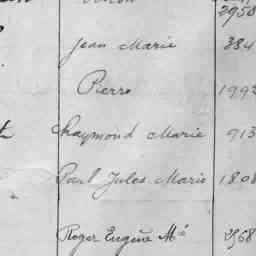 2958
Jean Marie 384
Pierre 1992
Raymond Marie 913
Paul Jules Marie 1808
Roger Eugène Mie 2568